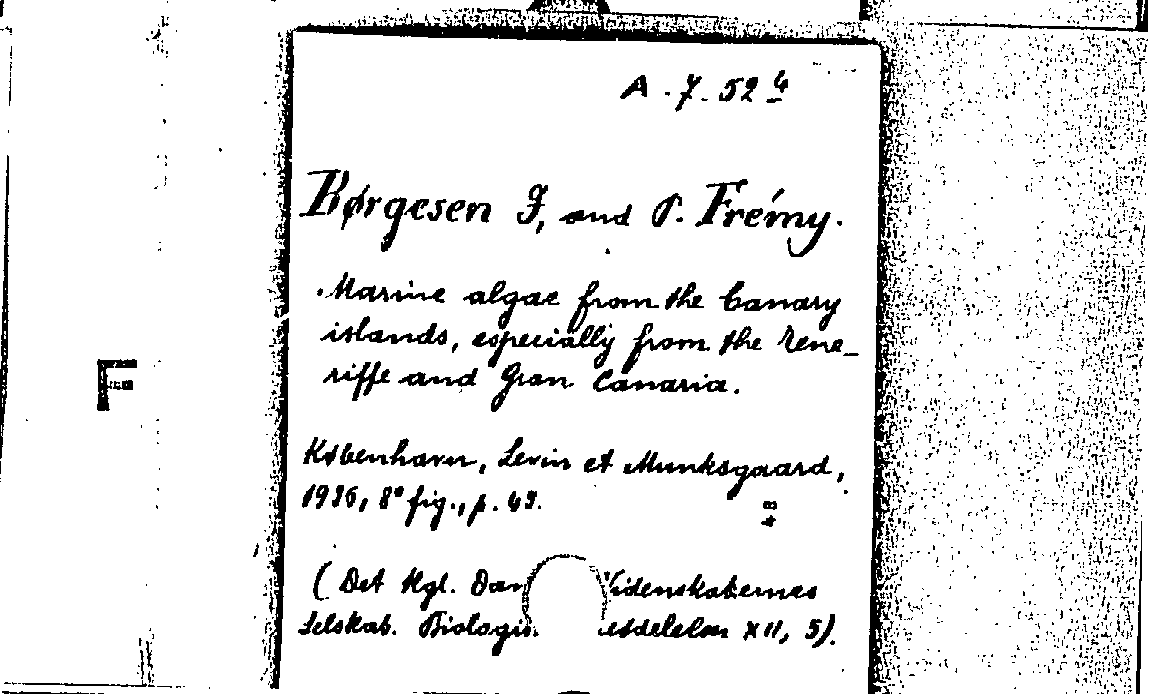 A. 7. 52 4
Børgesen F, and P. Frémy.
Marine algae from the Canary
islands, especially from the Tene-
riffe and Gran Canaria.
F
København, Levin et Munksgaard,
1936, 8° fig., p. 49.
(Det Kgl. Dan Videnskabernes
Selskab. Biologis esdelelser XII, 5).